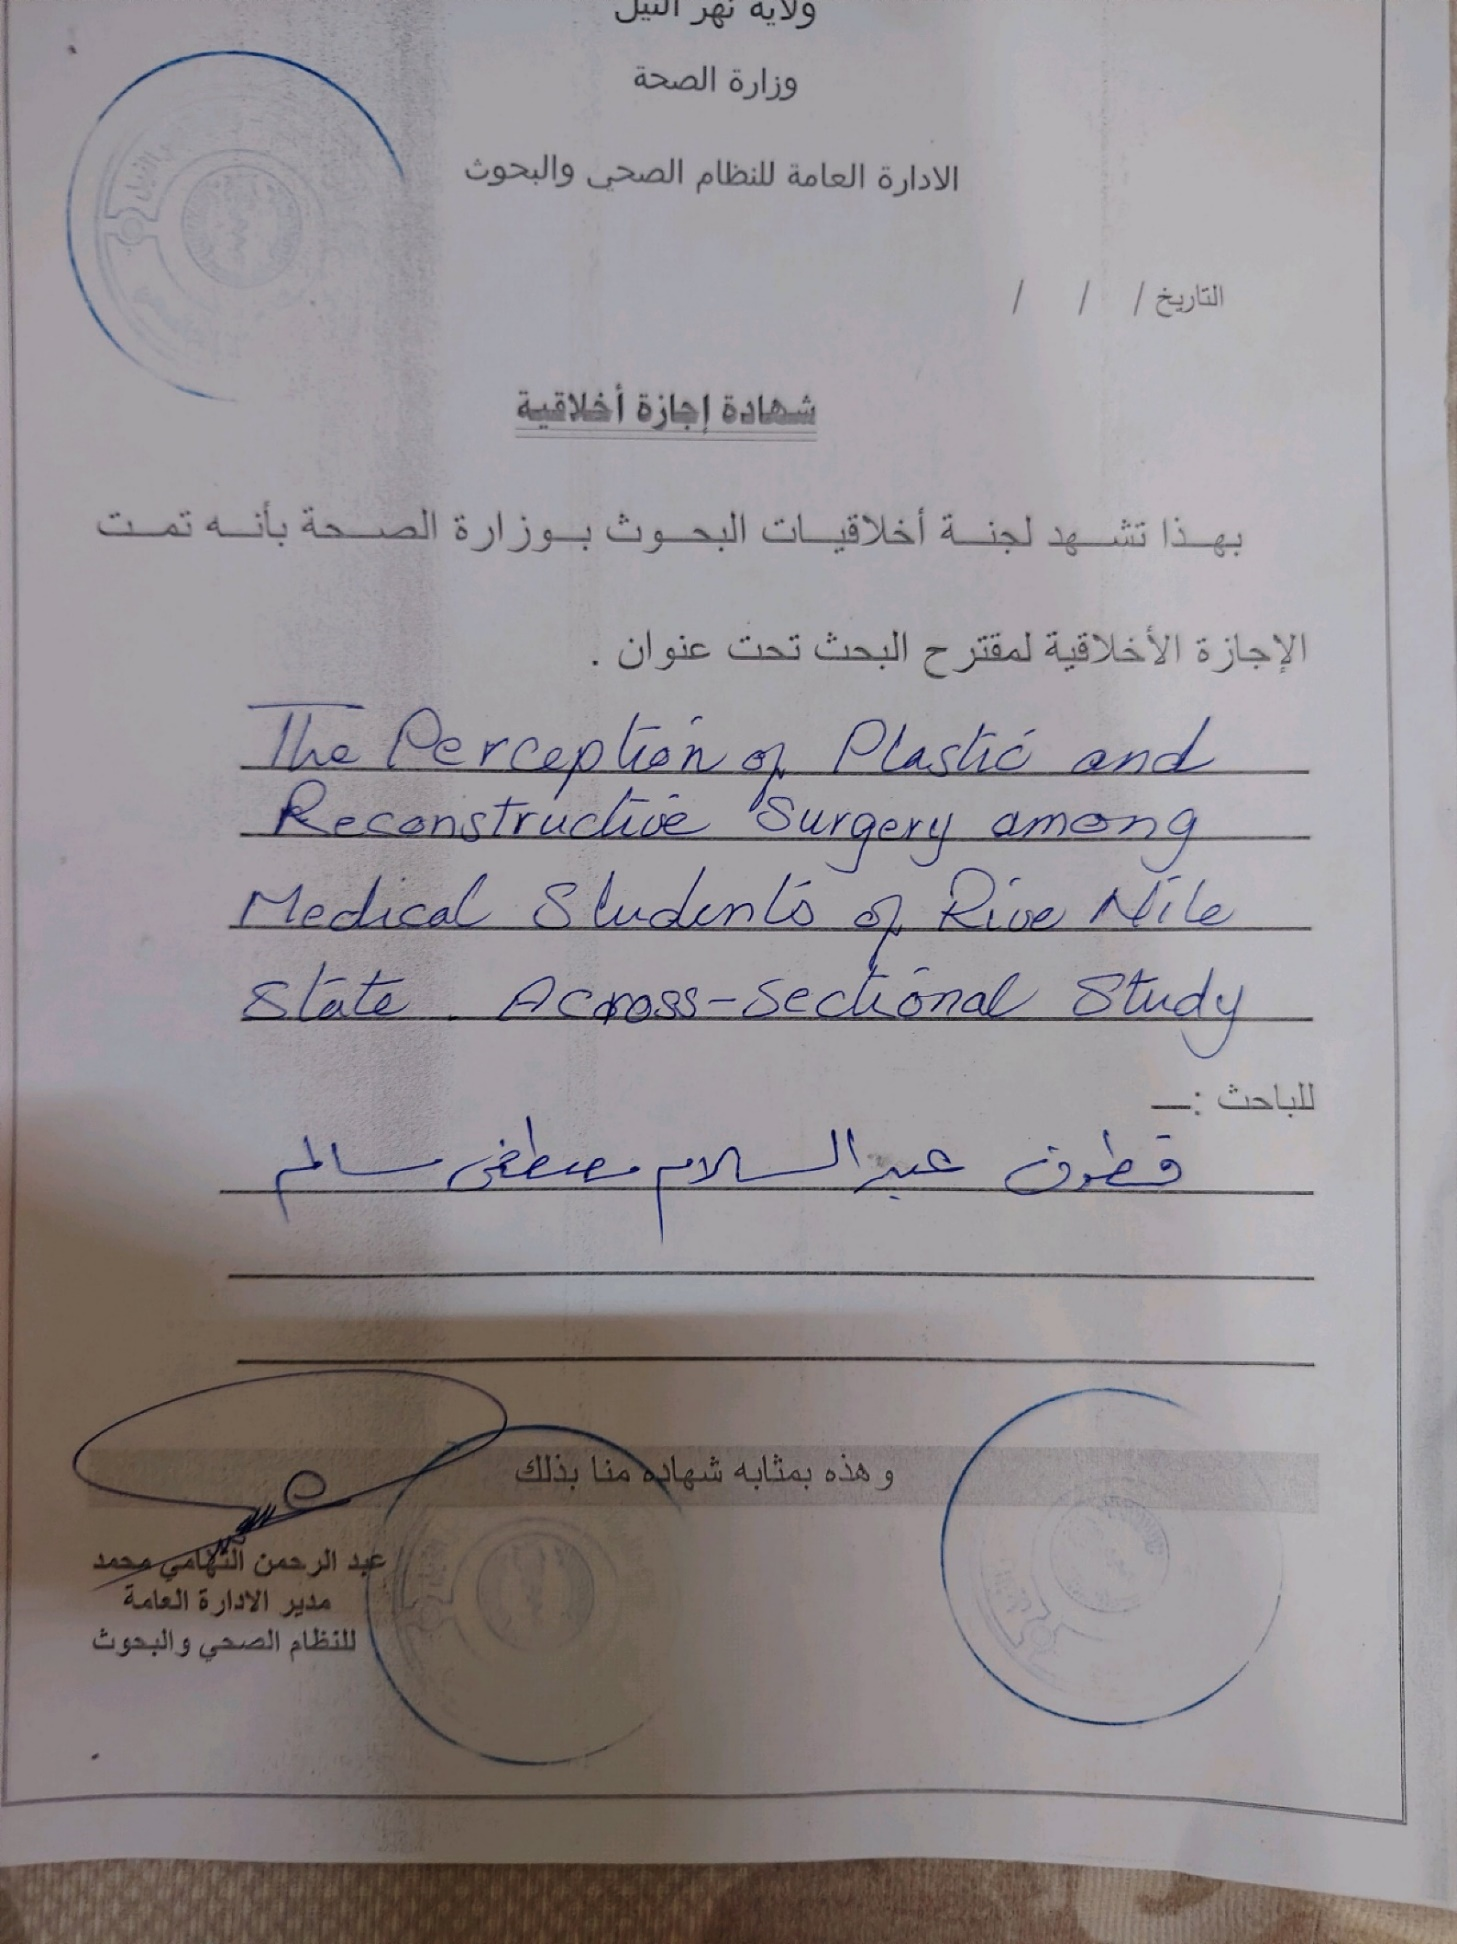 ولاية نهر النيل
وزارة الصحة
الادارة العامة للنظام الصحي والبحوث
التاريخ / / /
شهادة إجازة أخلاقية
بهذا تشهد لجنة أخلاقيات البحوث بوزارة الصحة بأنه تمت
الإجازة الأخلاقية لمقترح البحث تحت عنوان .
The Perception of Plastic and
Reconstructive Surgery among
Medical Students of Rive Nile
State . Across-Sectional Study
للباحث :_
قطوف عبد السلام مصطفى سالم
وهذه بمثابه شهاده منا بذلك
عبد الرحمن التهامي محمد
مدير الادارة العامة
للنظام الصحي والبحوث